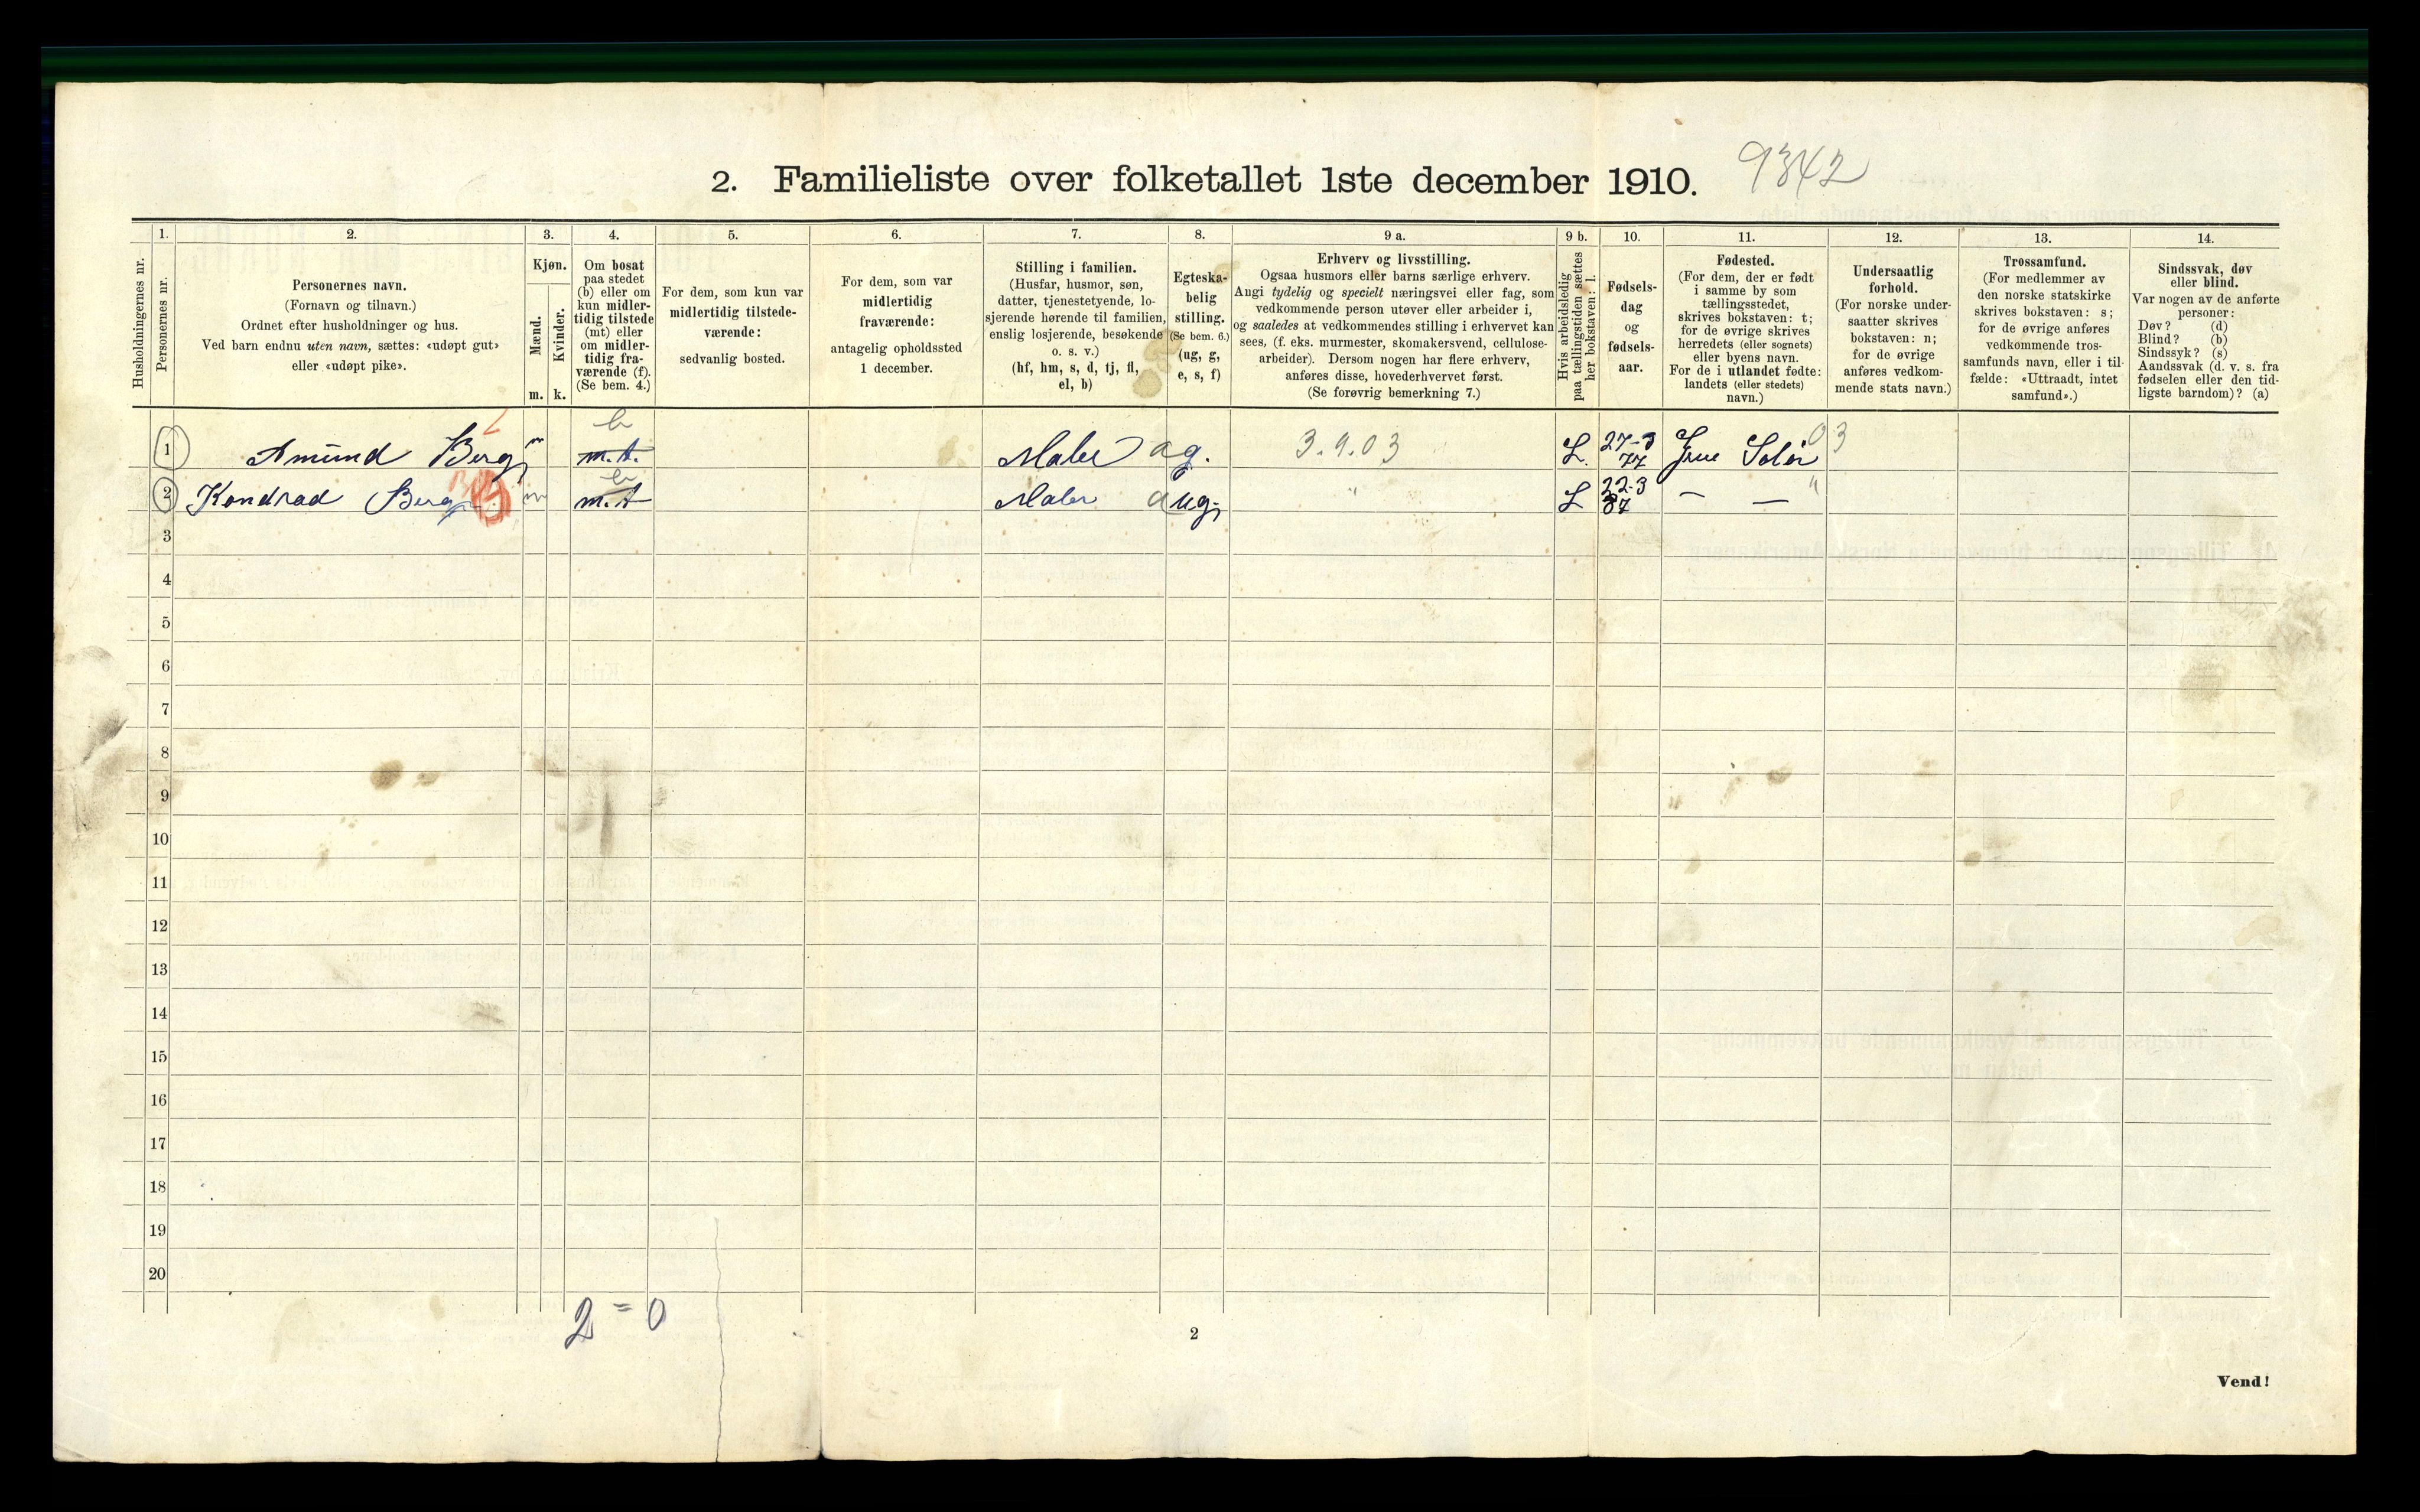 2. Familieliste over folketallet 1ste december 1910. 9342
1. 2. 3. 4. 5. 6. 7. 8. 9 a. 9 b. 10. 11. 12. 13. 14.
Husholdningernes nr.
Personernes nr.
Personernes navn.
(Fornavn og tilnavn.)
Ordnet efter husholdninger og hus.
Ved barn endnu uten navn, sættes: «udøpt gut»
eller «udøpt pike».
Kjøn.
Mænd.
Kvinder.
m. k.
Om bosat
paa stedet
(b) eller om
kun midler-
tidig tilstede
(mt) eller
om midler-
tidig fra-
værende (f).
(Se bem. 4.)
For dem, som kun var
midlertidig tilstede-
værende:
sedvanlig bosted.
For dem, som var
midlertidig
fraværende:
antagelig opholdssted
1 december.
Stilling i familien.
(Husfar, husmor, søn,
datter, tjenestetyende, lo-
sjerende hørende til familien,
enslig losjerende, besøkende
o. s. v.)
(hf, hm, s, d, tj, fl,
el, b)
Egteska-
belig
stilling.
(Se bem. 6.)
(ug, g,
e, s, f)
Erhverv og livsstilling.
Ogsaa husmors eller barns særlige erhverv.
Angi tydelig og specielt næringsvei eller fag, som
vedkommende person utøver eller arbeider i,
og saaledes at vedkommendes stilling i erhvervet kan
sees, (f. eks. murmester, skomakersvend, cellulose-
arbeider). Dersom nogen har flere erhverv,
anføres disse, hovederhvervet først.
(Se forøvrig bemerkning 7.)
Hvis arbeidsledig
paa tællingstiden sættes
her bokstaven: l.
Fødsels-
dag
og
fødsels-
aar.
Fødested.
(For dem, der er født
i samme by som
tællingsstedet,
skrives bokstaven: t;
for de øvrige skrives
herredets (eller sognets)
eller byens navn.
For de i utlandet fødte:
landets (eller stedets)
navn.)
Undersaatlig
forhold.
(For norske under-
saatter skrives
bokstaven: n;
for de øvrige
anføres vedkom-
mende stats navn.)
Trossamfund.
(For medlemmer av
den norske statskirke
skrives bokstaven: s;
for de øvrige anføres
vedkommende tros-
samfunds navn, eller i til-
fælde: «Uttraadt, intet
samfund».)
Sindssvak, døv
eller blind.
Var nogen av de anførte
personer:
Døv? (d)
Blind? (b)
Sindssyk? (s)
Aandssvak (d. v. s. fra
fødselen eller den tid-
ligste barndom)? (a)
b
1 Amund Berg m m.t. Maler a g. 3.9.03 L. 27-3 77 Grue Solør 03
b
2 Kondrad Berg m m.t Maler a ug. " L 22-3 87 — — "
3
4
5
6
7
8
9
10
11
12
13
14
15
16
17
18
19
20
2 = 0
2
Vend!